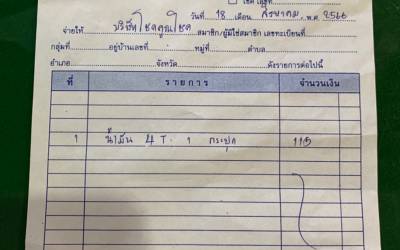 วันที่ 18 เดือน สิงหาคม พ.ศ. 2566
จ่ายให้ บริษัทโชคคูณโชค สมาชิก/ผู้มิใช่สมาชิก เลขทะเบียนที่
กลุ่มที่ อยู่บ้านเลขที่ หมู่ที่ ตำบล
อำเภอ จังหวัด ดังรายการต่อไปนี้
ที่ รายการ จำนวนเงิน
1 น้ำมัน 4T 1 กระปุก 115